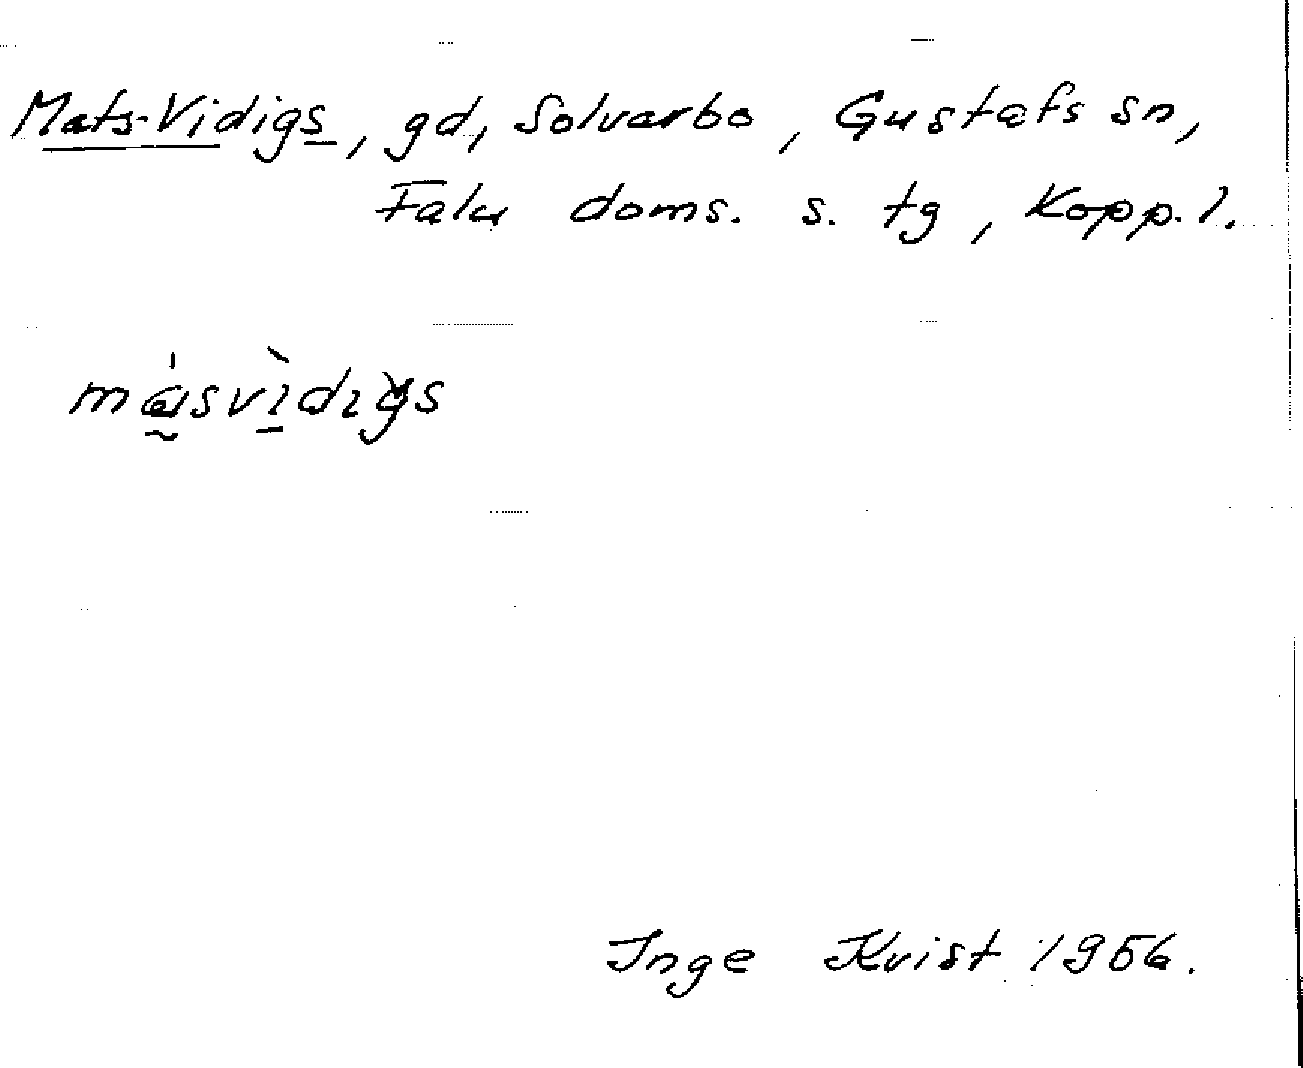 Mats-Vidigs, gd, Solvarbo, Gustafs sn,
Falu doms. s. tg, Kopp. l.
másvìdigs
Inge Kvist 1956.